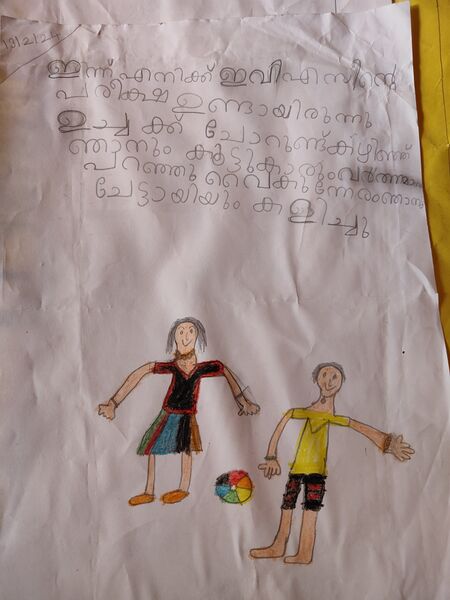 13/2/24
ഇന്ന് എനിക്ക് ഇവിഎസിന്റെ
പരീക്ഷ ഉണ്ടായിരുന്നു
ഉച്ച ക്ക് ചോറുണ്ട്കഴിഞ്ഞ്
ഞാനും കൂട്ടുകാരും
പറഞ്ഞു വൈകുന്നേരംഞാനും
ചേട്ടായിയും കളിച്ചു